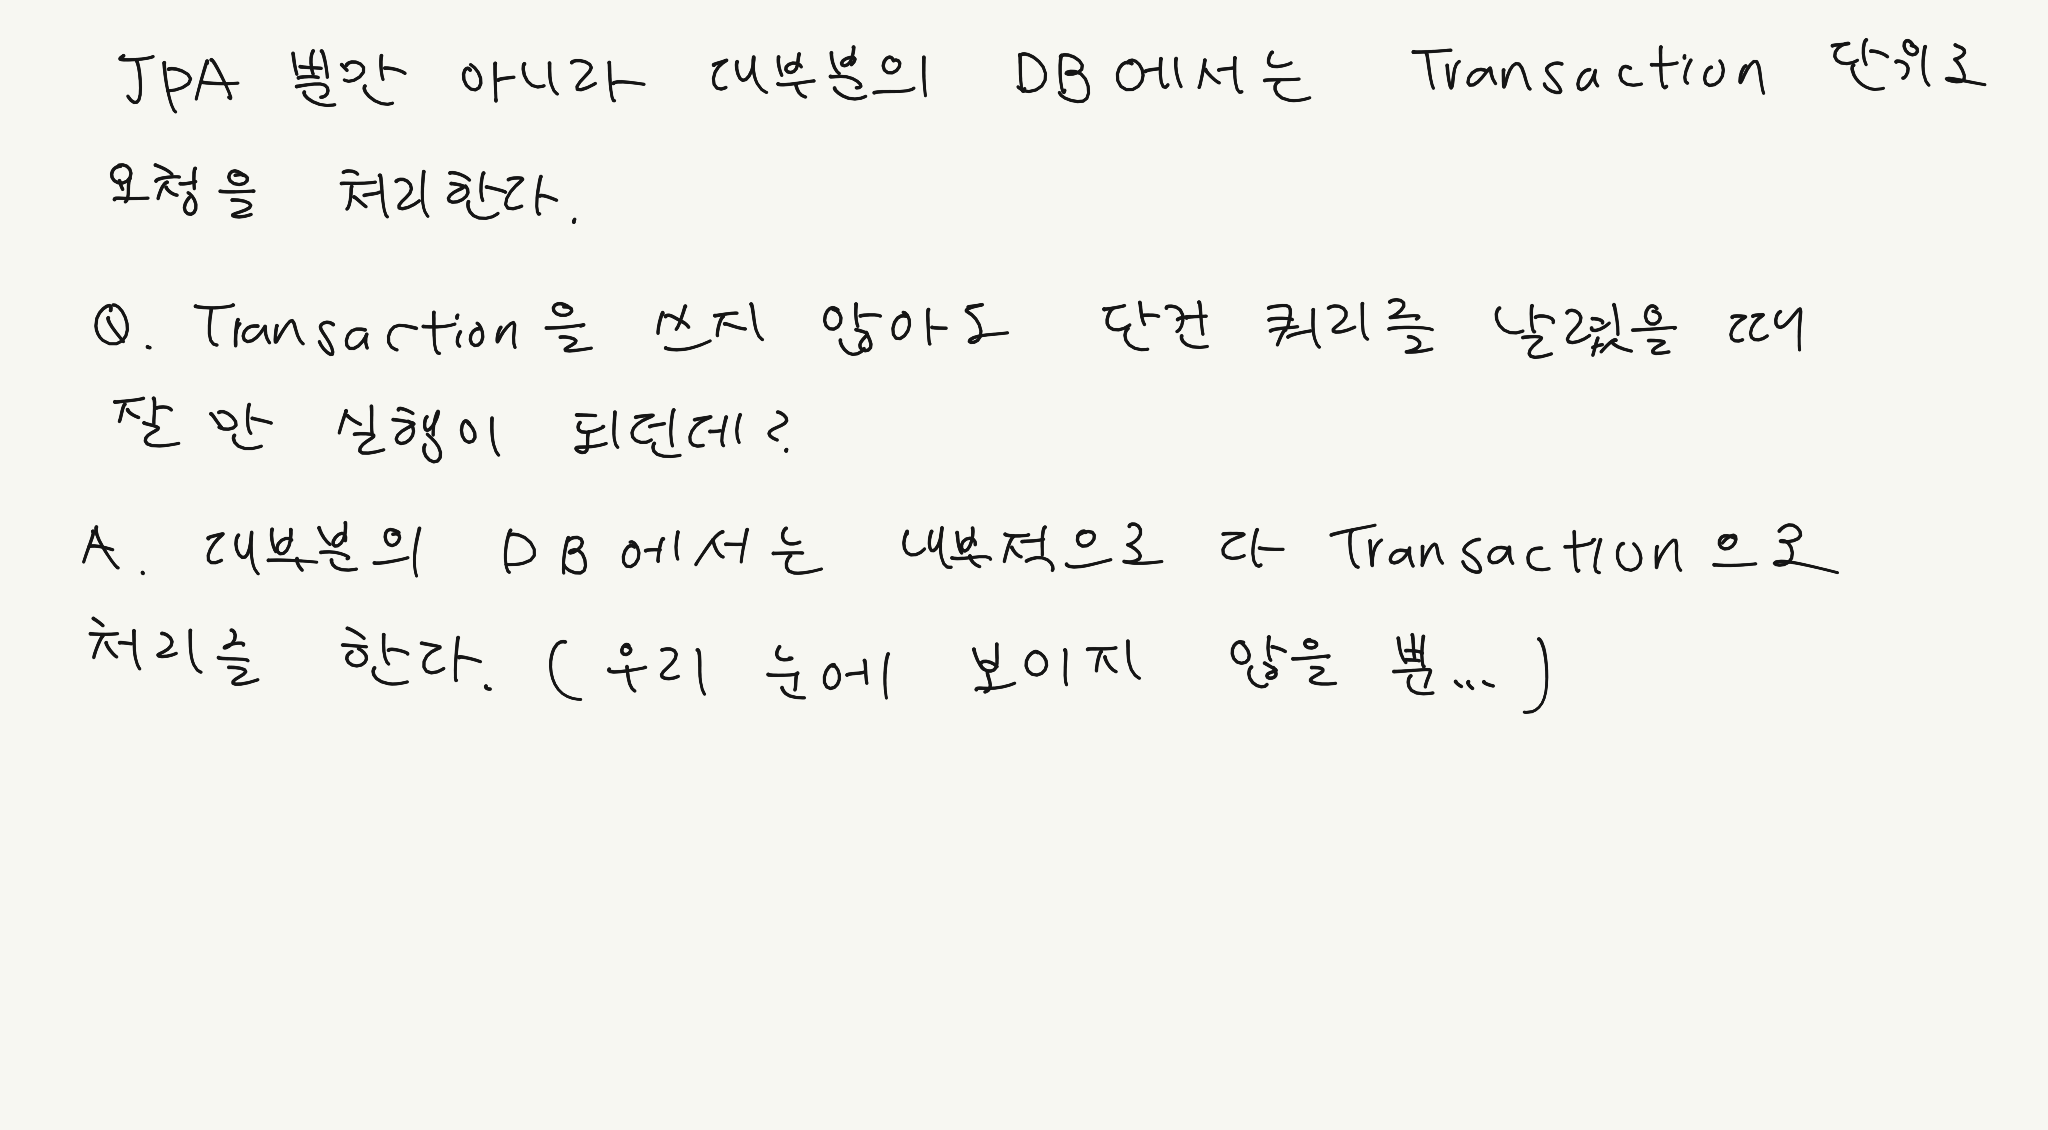 JPA 뿐만 아니라 대부분의 DB에서는 Transaction 단위로
요청을 처리한다.
Q. Transaction을 쓰지 않아도 단건 쿼리를 날렸을 때
잘 만 실행이 되던데?
A. 대부분의 DB에서는 내부적으로 다 Transaction으로
처리를 한다. (우리 눈에 보이지 않을 뿐...)